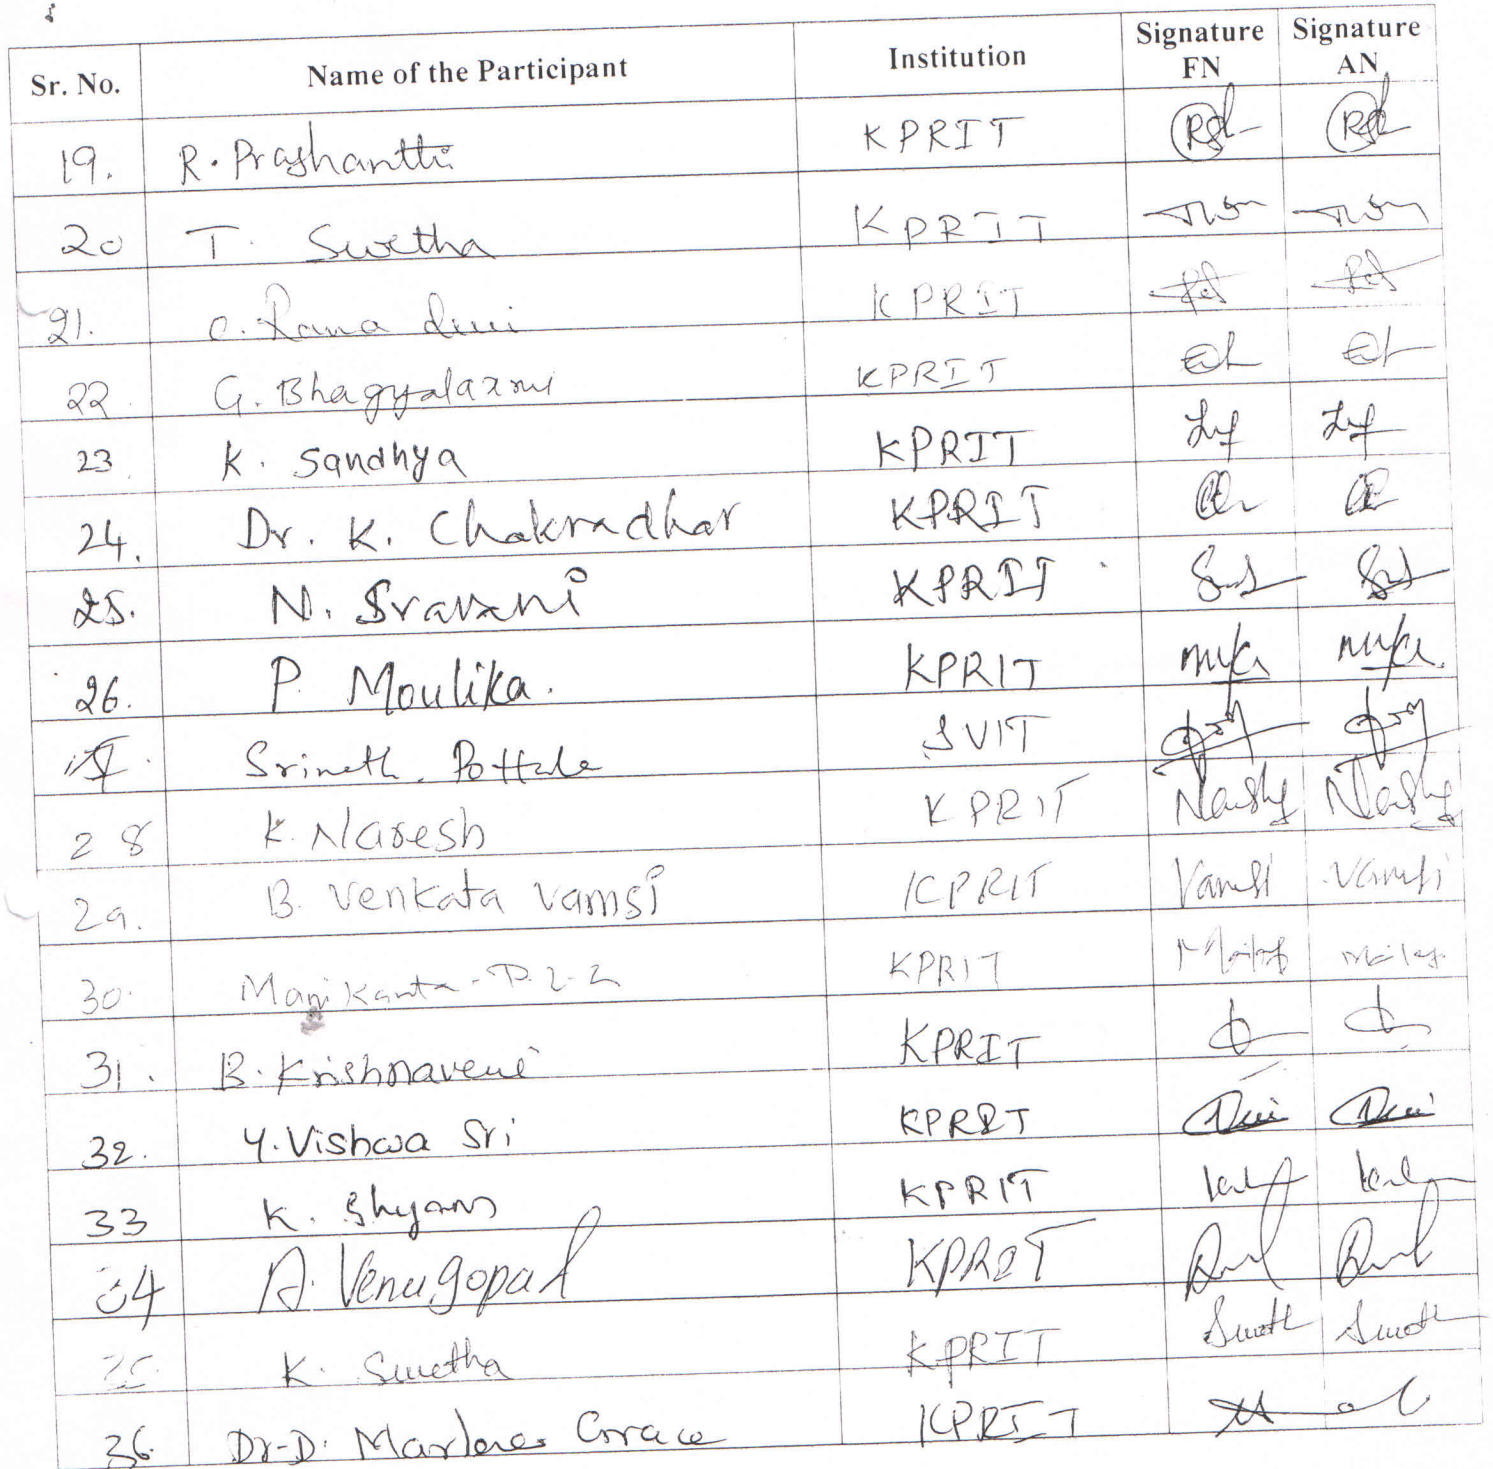 Sr. No. Name of the Participant Institution Signature FN Signature AN
19. R. Prashanthi KPRIT
20 T. Swetha KPRIT
21. C. Rama devi KPRIT
22. G. Bhagyalaxmi KPRIT
23. K. Sandhya KPRIT
24. Dr. K. Chakradhar KPRIT
25. N. Sravani KPRIT
26. P. Moulika. KPRIT
Srineth. SVIT
28 K. Naresh KPRIT
29. B. Venkata Vamsi KPRIT Vamsi Vamsi
30. Manikanta KPRIT
31. B. Krishnaveni KPRIT
32. Y. Vishwa Sri KPRIT
33 K. Shyam KPRIT
34 A. Venugopal KPRIT
K. Swetha KPRIT Sweth Sweth
36. Dr-D. Grace KPRIT